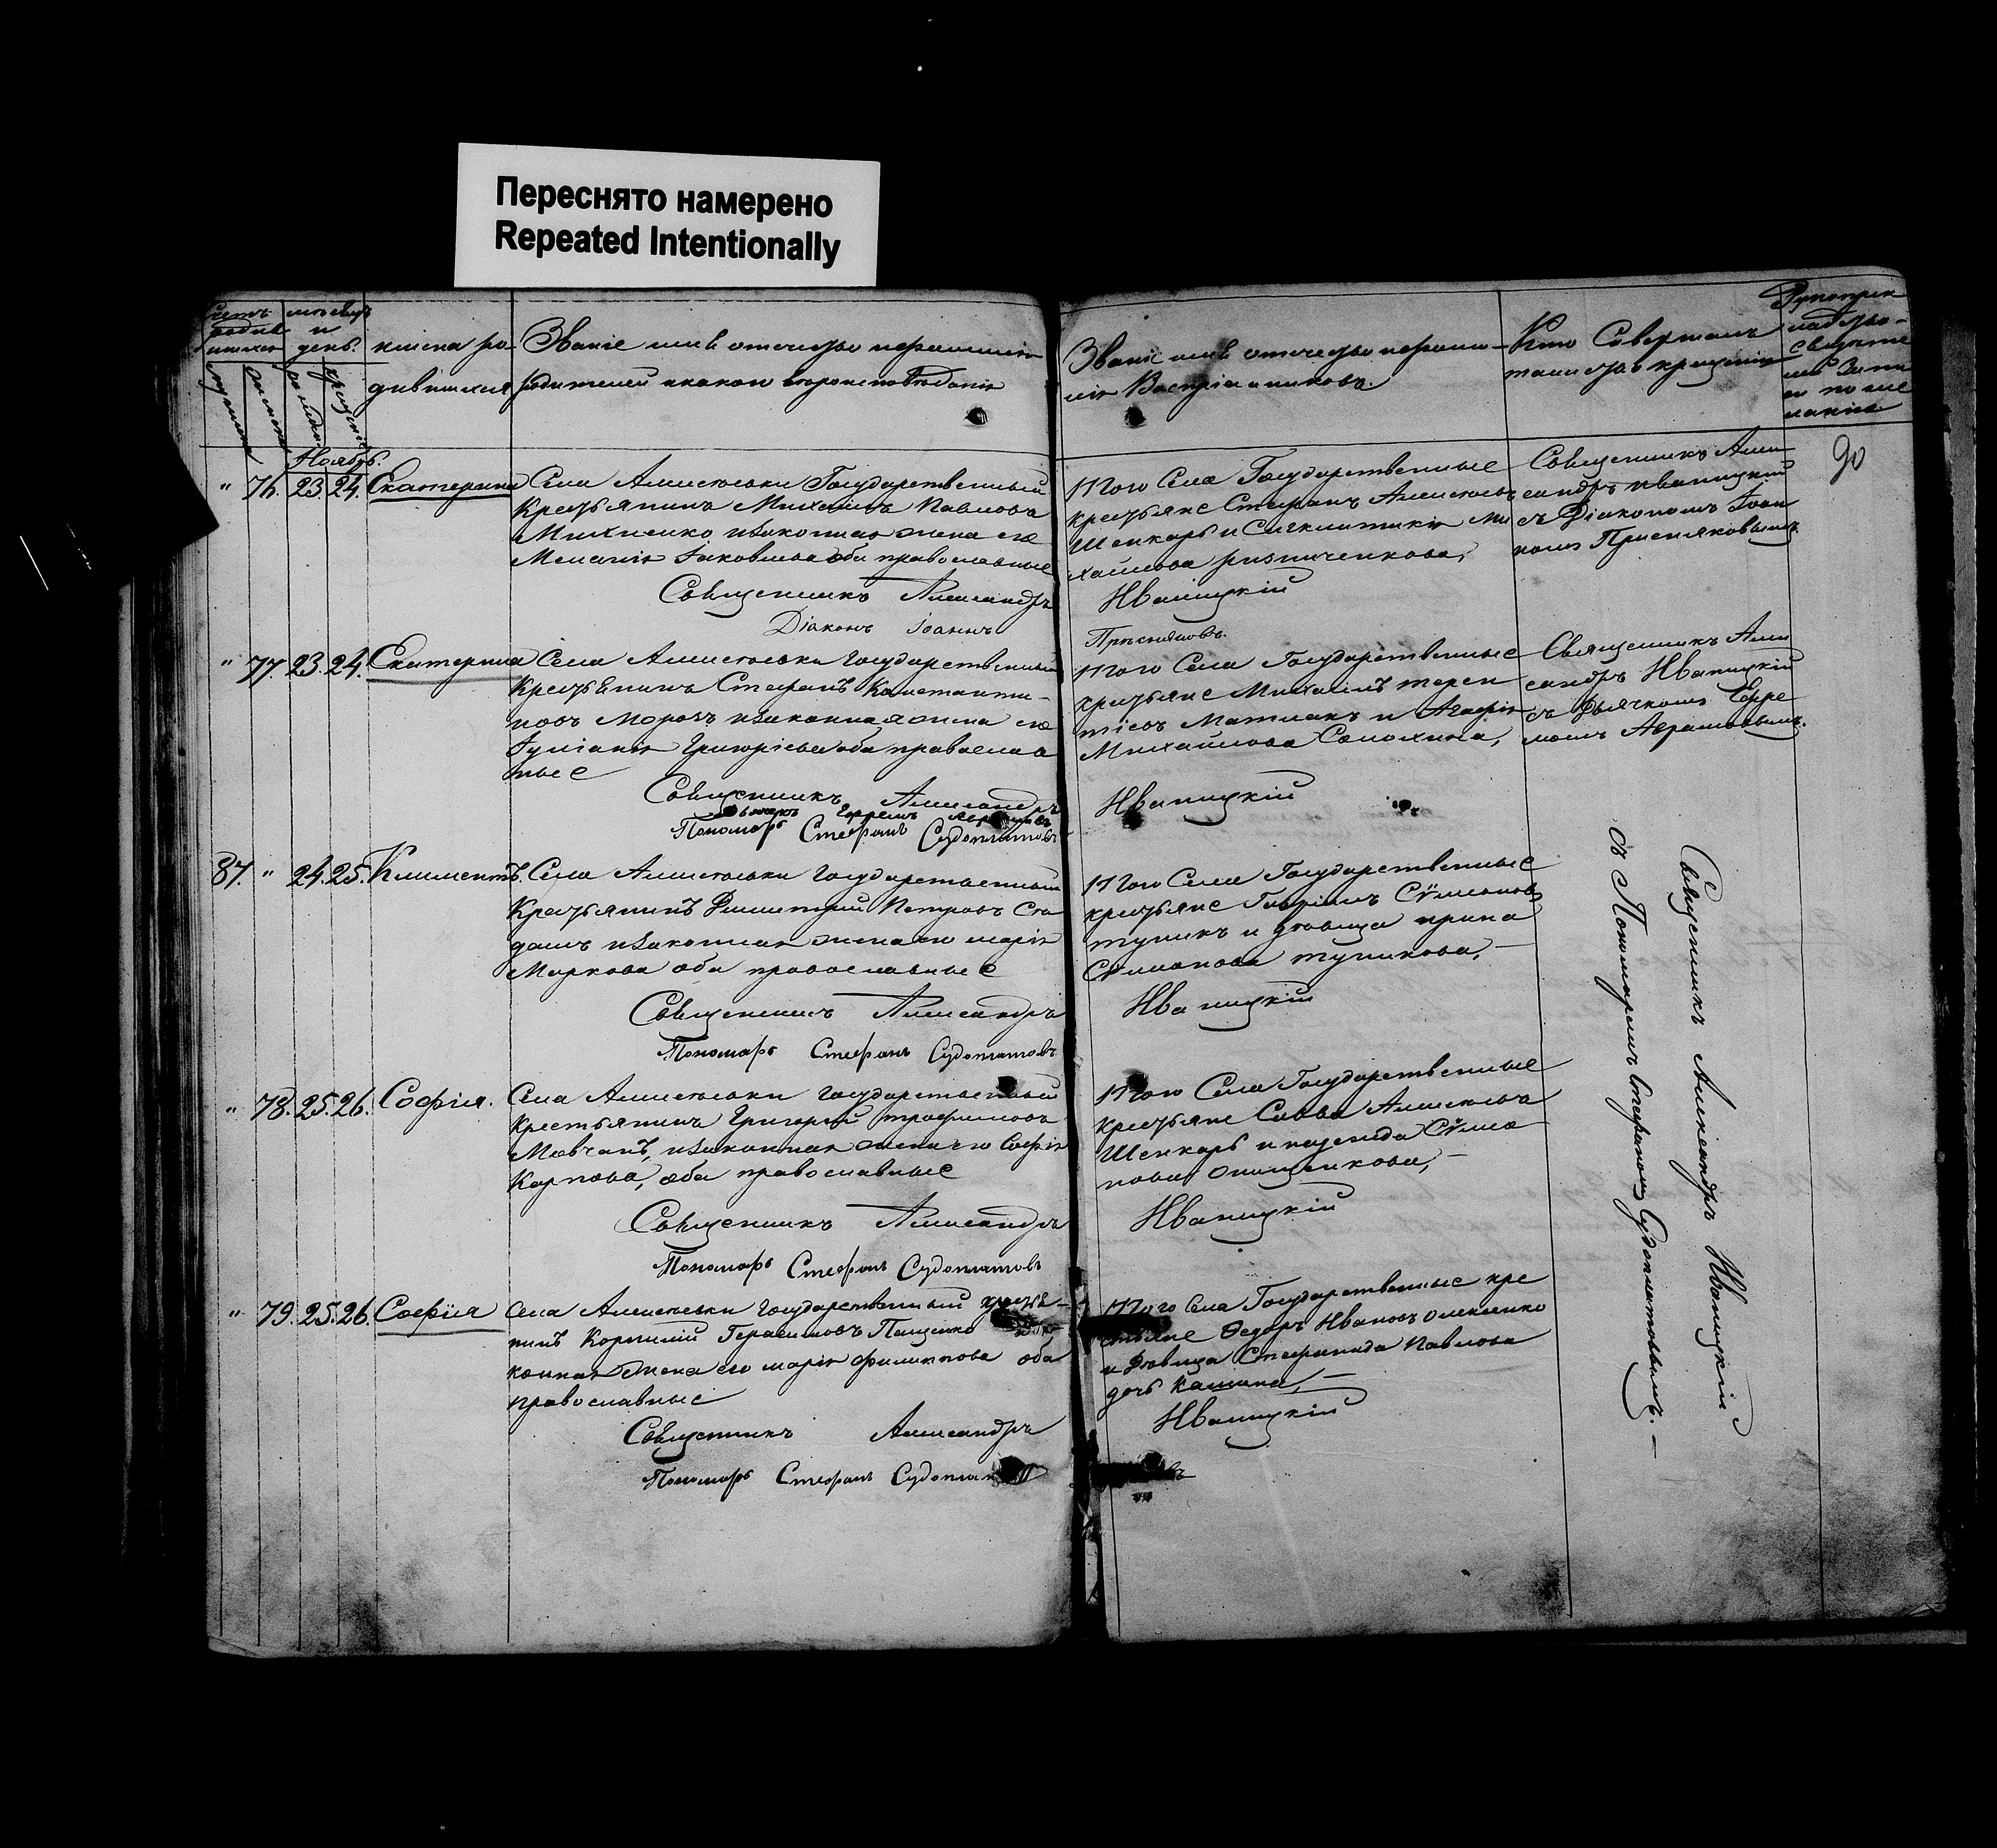 Переснято намерено
Repeated Intentionally
Счетъ родив шихся
мѣсяцъ и день.
имена ро-
дившихся
Званіе имя отчество и фамилія
родителей и какого вѣроисповѣданія
Званіе имя отчество и фамилія
Воспріемниковъ.
Кто Совершалъ
таинство крещенія
Рукоприкладство
свидѣтелей записи по желанію
90
Ноябрь.
" 76. 23. 24. Екатерина
Села Алексеевки Государственный
Крестьянинъ Михаилъ Павловъ
Михненко и законная жена его
Меланія Іаковлева оба православные
Священникъ Александръ
Діаконъ Іоаннъ
Того Села Государственные
крестьяне Стефанъ Алексеевъ
Шенкарь и Сигклитикія Ми
хайлова
Иваницкій
Священникъ Алек
сандръ Иваницкій
съ Діакономъ Іоан
номъ
" 77. 23. 24. Екатерина
Села Алексеевки Государственный
Крестьянинъ Стефанъ Константи-
новъ Морозъ и законная жена его
Іуліанія Григоріева оба православ
ные
Священникъ Александръ
Дьячекъ Ефремъ
Пономарь Стефанъ Судоплатовъ
Того Села Государственные
крестьяне Михаилъ Терен
тіевъ и Агафія
Михайлова
Иваницкій
Священникъ Алек
сандръ Иваницкій
съ Дьячкомъ Ефре
момъ Аврамовымъ.
87. " 24. 25. Климентъ.
Села Алексеевки Государственный
Крестьянинъ Димитрій Петровъ
и законная жена его марія
Маркова оба православные
Священникъ Александръ
Пономарь Стефанъ Судоплатовъ
Того Села Государственные
крестьяне Гавріилъ Сѵмеоновъ
тупикъ и дѣвица ирина
Сѵмеонова тупикова, —
Иваницкій
" 78. 25. 26. Софія.
Села Алексеевки Государственный
крестьянинъ Григорій трофимовъ
Мовчанъ, и законная жена его Софія
Карпова, оба православные
Священникъ Александръ
Пономарь Стефанъ Судоплатовъ
Того Села Государственные
крестьяне Савва Алексеевъ
Шенкарь и надежда Сѵмео
нова Онищенкова, —
Иваницкій
" 79. 25. 26. Софія
Села Алексеевки Государственный
Корнилій Герасимовъ Пащенко
конная жена его марія филиппова оба
православные
Священникъ Александръ
Пономарь Стефанъ
Того Села Государственные кре
Ѳедоръ Ивановъ
и Дѣвица Стефанида Павлова
дочь
Иваницкій
Священникъ Александръ Иваницкій
съ Пономаремъ Стефаномъ Судоплатовымъ. —